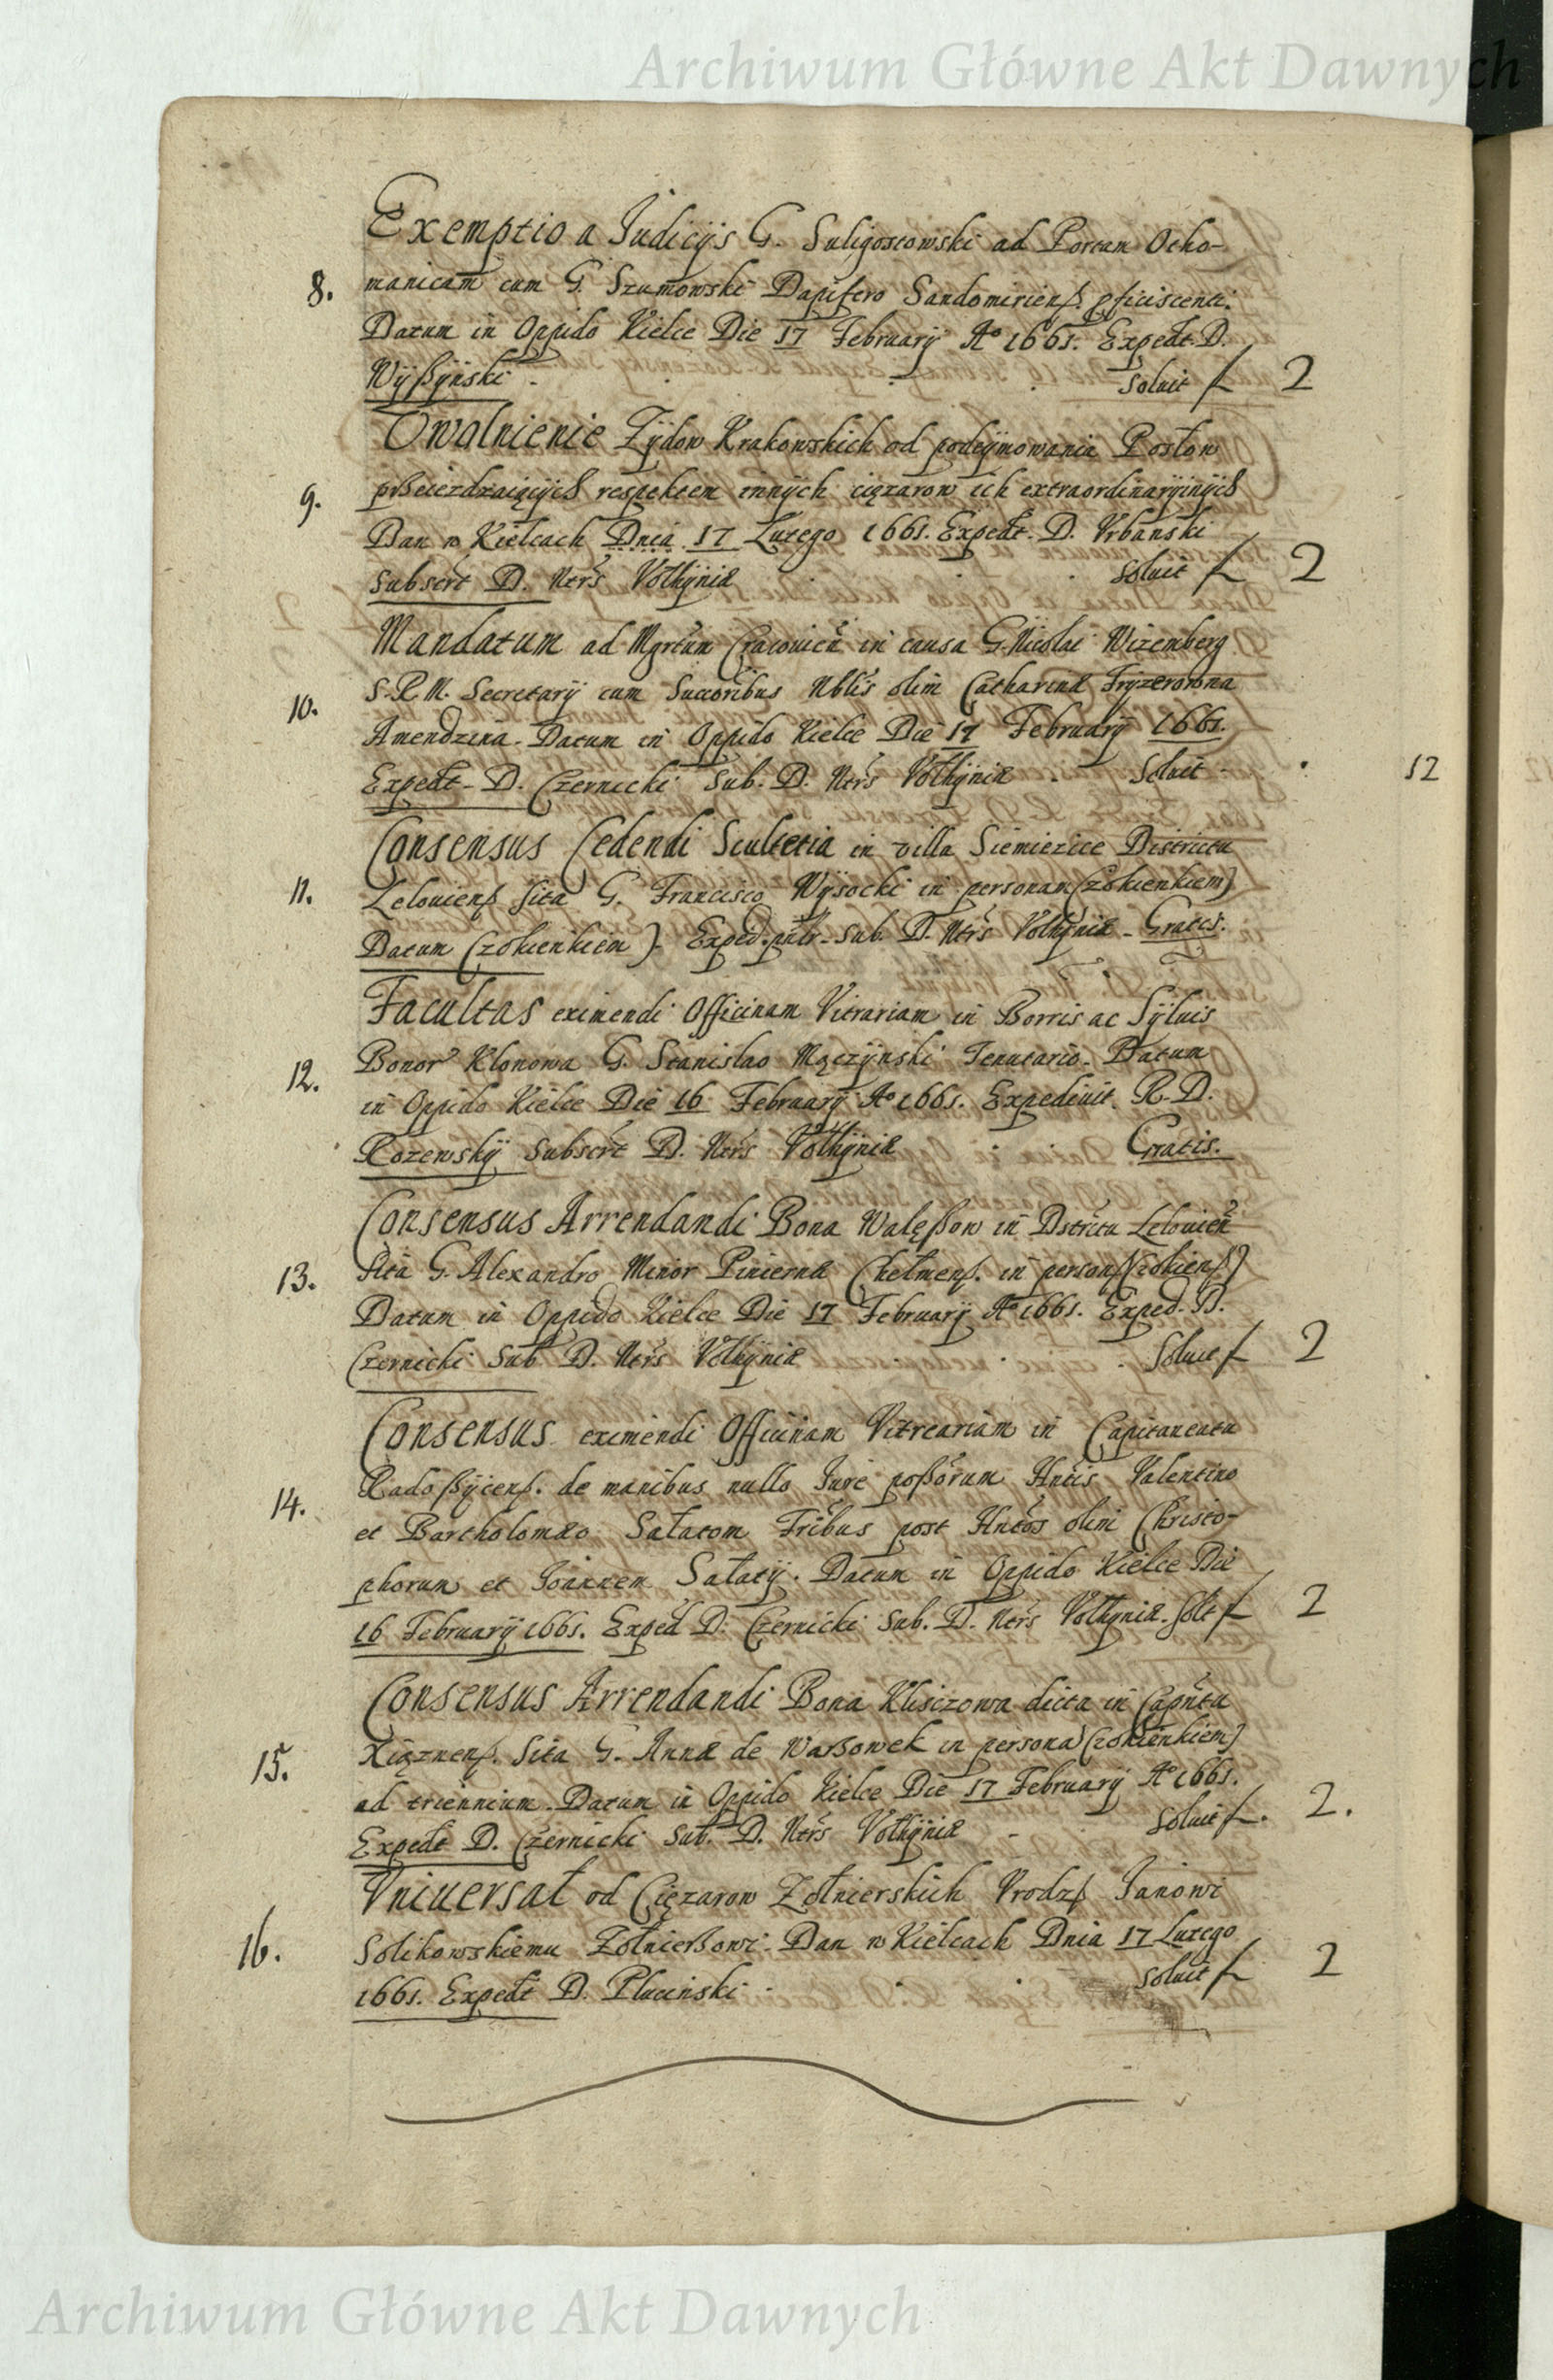 Archiwum Główne Akt Dawnych
Exemptio a Judicijs G. Suligostowski ad Portam Otho-
8. manicam cum G. Szumowski Dapifero Sandomirienß pficiscenti.
Datum in Oppido Kielce Die 17 February Ao 1661. Expedt. D.
Wyßyński . Soluit f 2
Uwolnienie Żydow Krakowskich od podeymowania Posłow
9. pßeiezdzaiących respektem innych cięzarow ich extraordinaryinych
Dan w Kielcach Dnia 17 Lutego 1661. Expedt. D. Vrbanski
subscrt D. Ntrs Volhyniæ Soluit f 2
Mandatum ad Mgrtum Cracouien in causa G. Nicolai Wizenberg
10. S.R.M. Secretarij cum Succoribus Nblis olim Catharinæ Fryzerowna
Amendzina. Datum in Oppido Kielce Die 17 February 1661.
Expedt. D. Czernicki Sub. D. Ntrs Volhyniæ . Soluit 12
Consensus Cedendi Scultetia in villa Siemiezice Districtu
11. Lelouienß sita G. Francisco Wysocki in personam (zokienkiem)
Datum (zokienkiem) Exped. patr. Sub. D. Ntrs Volhyniæ - Gratis.
Facultas eximendi Officinam Vitrariam in Borris ac Syluis
12. Bonor Klonowa G. Stanislao Mączynski Tenutario. Datum
in Oppido Kielce Die 16 February Ao 1661. Expediuit R. D.
Rozewsky Subscrt D. Ntrs Volhyniæ Gratis.
Consensus Arrendandi Bona Walęßow in Dstrictu Lelouien
13. sita G. Alexandro Minor Pincernæ Chełmenß. in personß (zokienß)
Datum in Oppido Kielce Die 17 February Ao 1661. Exped. D.
Czernicki Sub D. Ntrs Volhyniæ . Soluit f 2
Consensus eximendi Officinam Vitreariam in Capitaneatu
14. Radoßycenß. de manibus nullo Jure poßorum Hntis Valentino
et Bartholomæo Sałatom Fribus post Hntos olim Christo-
phorum et Joannem Sałaty. Datum in Oppido Kielce Die
16 February 1661. Exped D. Czernicki Sub. D. Ntrs Volhyniæ. Solt f 2
Consensus Arrendandi Bona Klisizowa dicta in Capntu
15. Xiąznenß. Sita G. Annæ de Warßowek in persona (zokienkiem)
ad triennium. Datum in Oppido Kielce Die 17 February Ao 1661.
Expedt D. Czernicki Sub. D. Ntrs Volhyniæ - Soluit f. 2.
Vniuersał od Cięzarow Zołnierskich Vrodzß Janowi
16. Solikowskiemu Zołnierßowi. Dan w Kielcach Dnia 17 Lutego
1661. Expedt D. Pluciński . Soluit f 2
Archiwum Główne Akt Dawnych